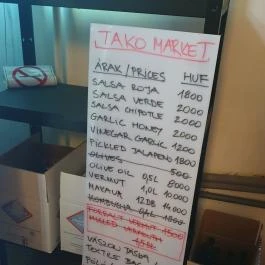 TAKO MARKET
ÁRAK/PRICES HUF
SALSA ROJA 1800
SALSA VERDE 2000
SALSA CHIPOTLE 2000
GARLIC HONEY 2000
VINEGAR GARLIC 1200
PICKLED JALAPENO 1800
OLIVES 500
OLIVE OIL 0,5L 6000
VERMUT 1,0L 10.000
MAKAVA 12DB 14.000
KOMBUCHA 0,4L 1800
FORRALT VERMUT 1500
MULLED VERMOUTH
VÁSZON TÁSKA
TEXTILE BAG